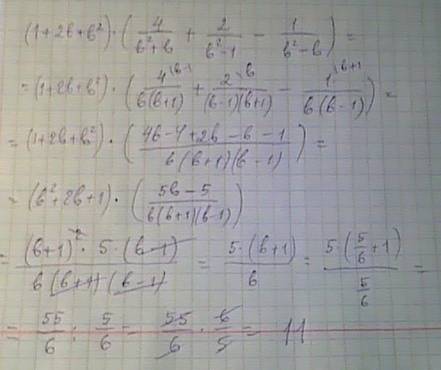 (1+2b+b²)·(4/(b²+b) + 2/(b²-1) - 1/(b²-b)) =
= (1+2b+b²)·(4\b-1/(b(b+1)) + 2\b/((b-1)(b+1)) - 1\b+1/(b(b-1))) =
= (1+2b+b²)·((4b-4+2b-b-1)/(b(b+1)(b-1))) =
= (b²+2b+1)·((5b-5)/(b(b+1)(b-1)))
= ((b+1)²·5·(b-1))/(b(b+1)(b-1)) = (5·(b+1))/b = (5·(5/6+1))/(5/6) =
= 55/6 : 5/6 = 55/6 · 6/5 = 11